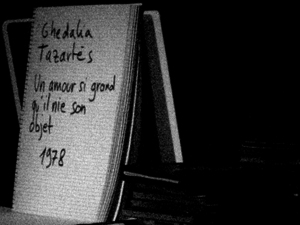 Ghedalia
Tazartès
Un amour si grand
qu'il nie son
objet
1978